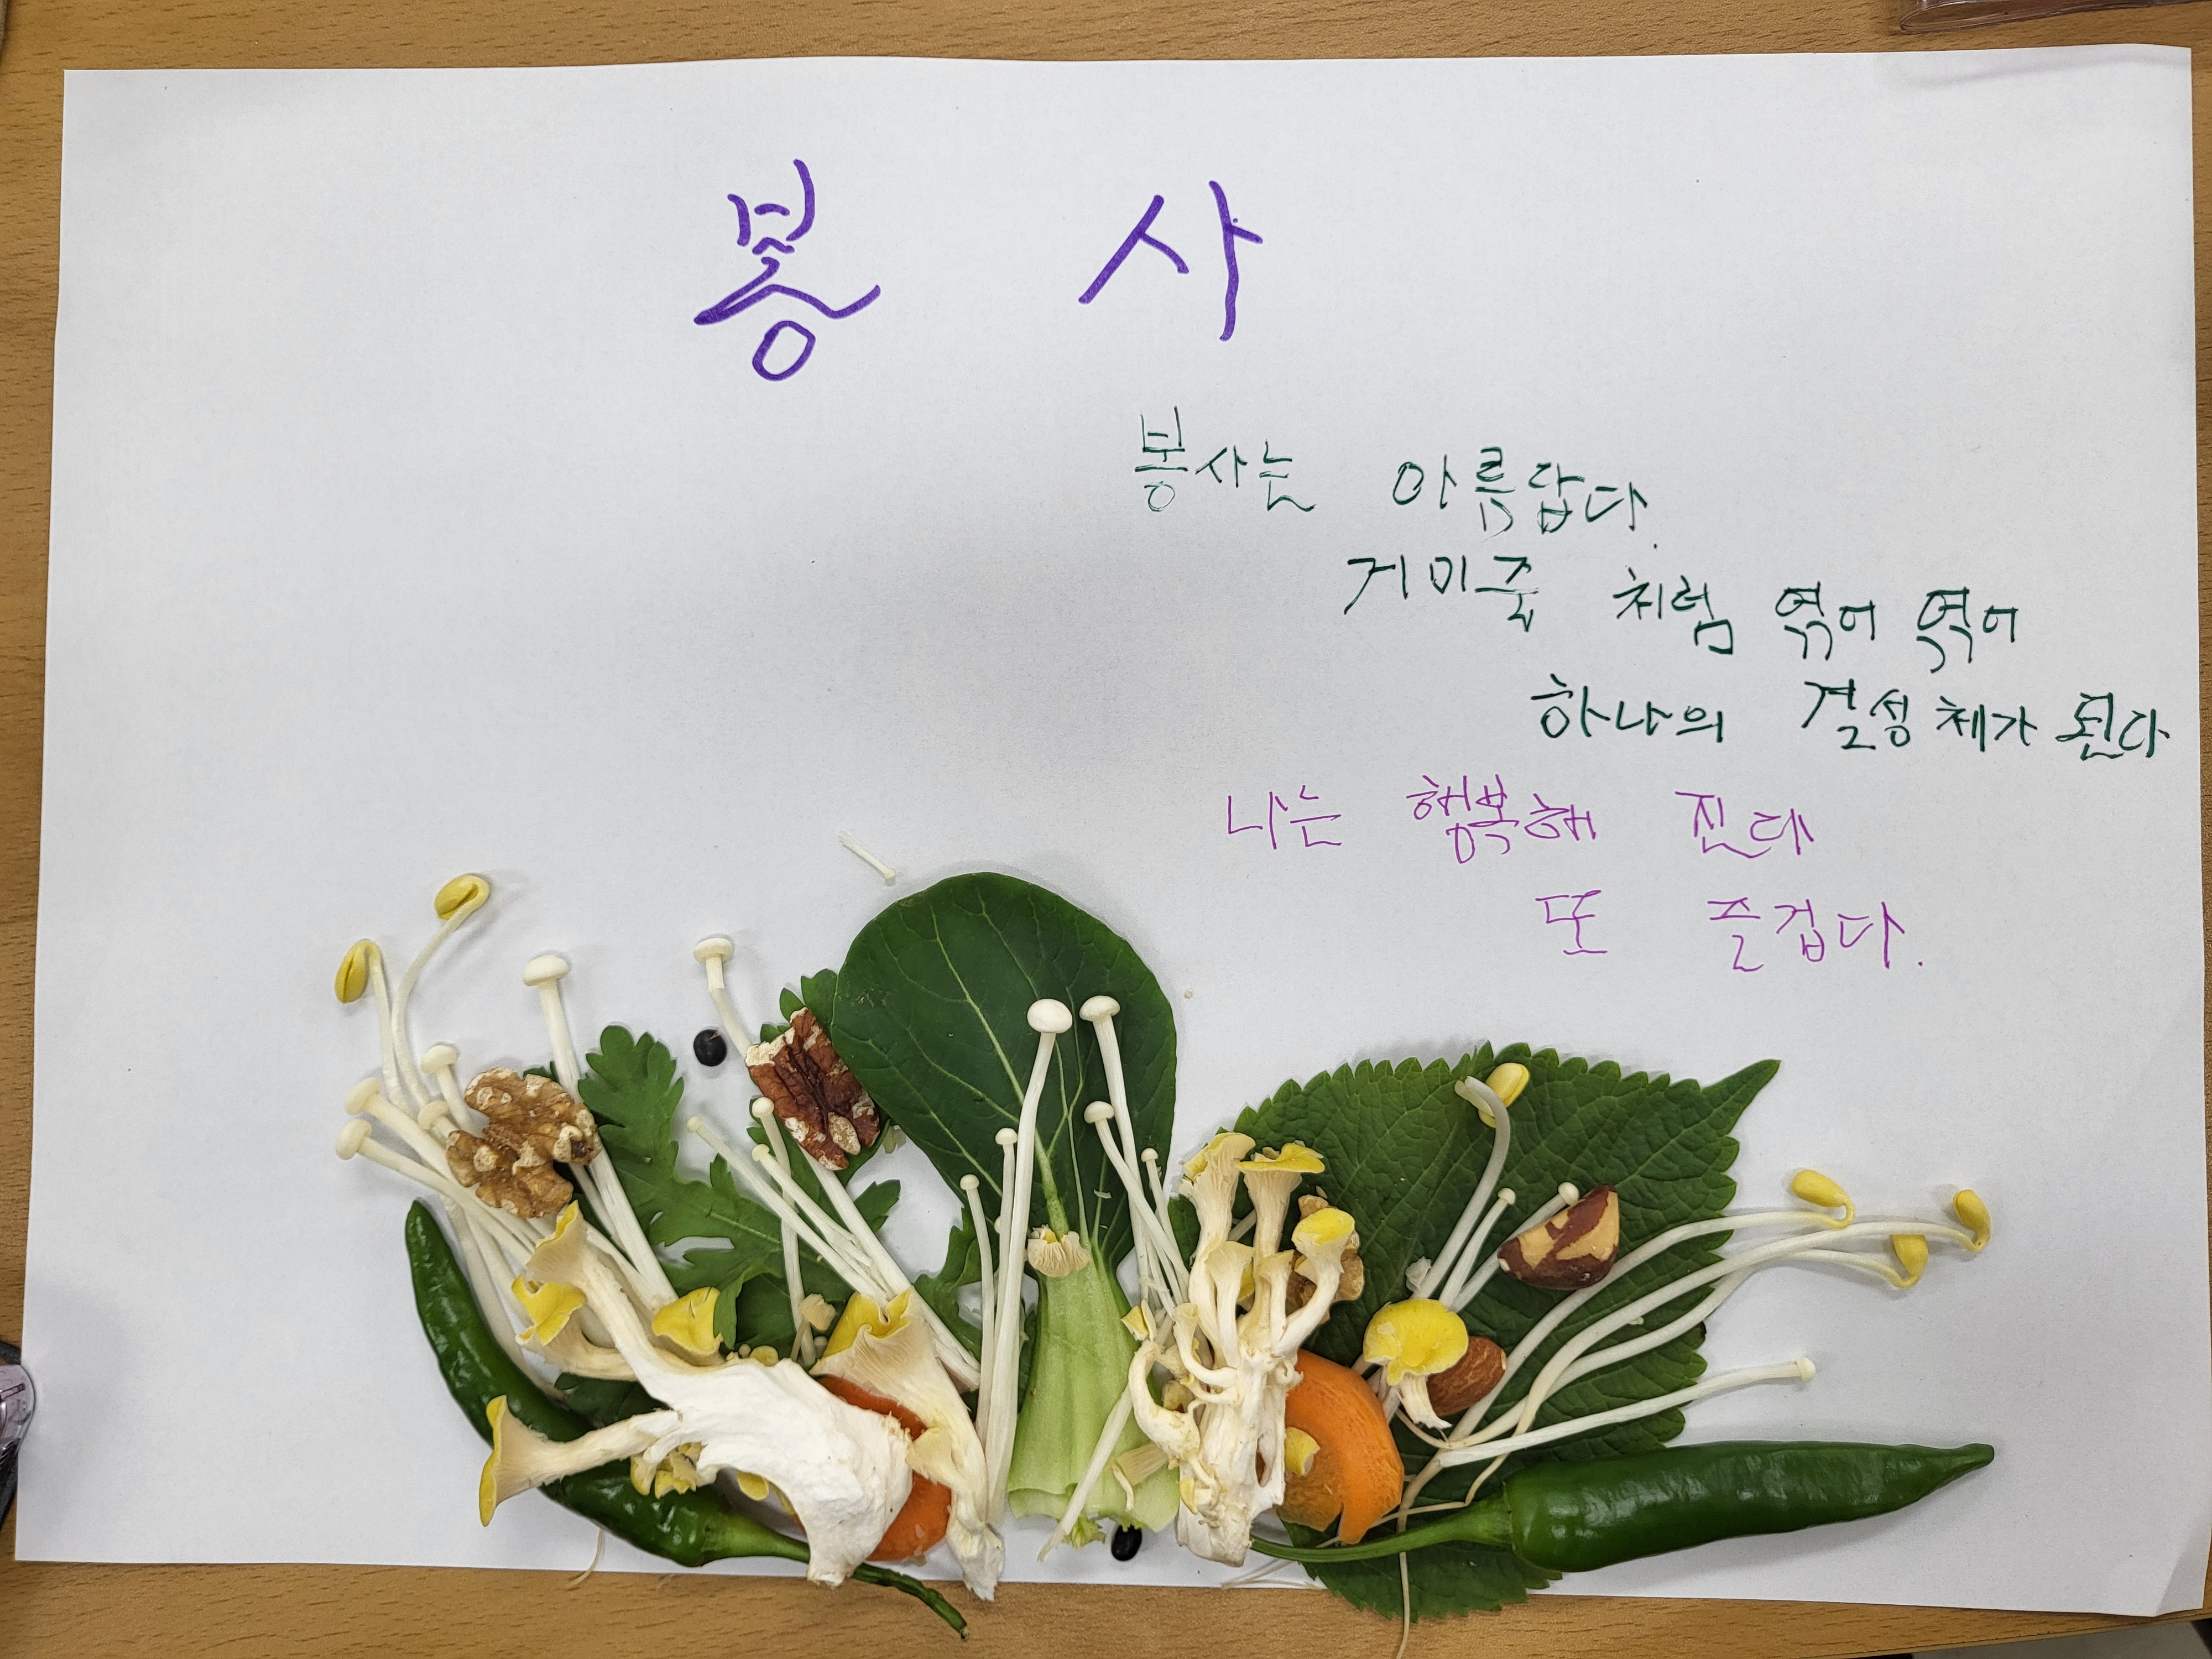 봉 사
봉사는 아름답다.
거미줄 처럼 엮어 엮어
하나의 결성체가 된다
나는 행복해 진다
또 즐겁다.